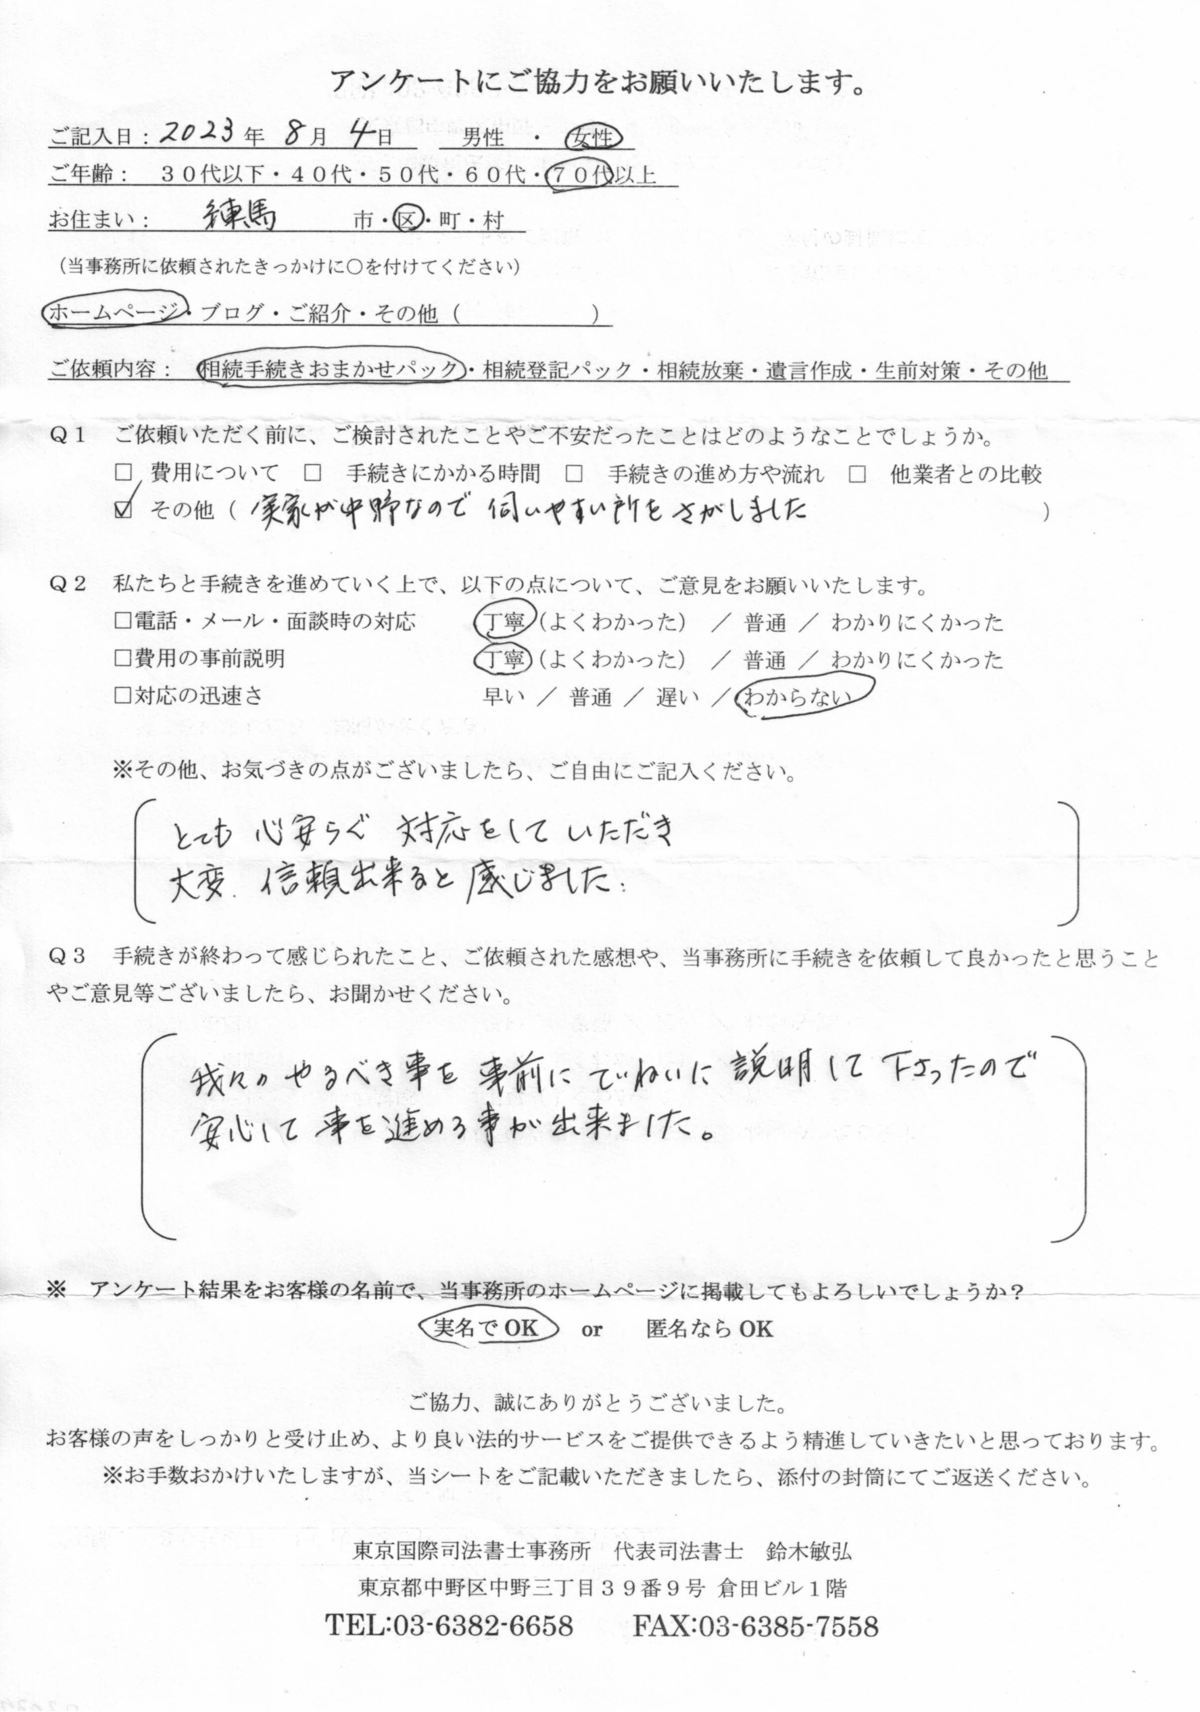 アンケートにご協力をお願いいたします。
ご記入日：2023年 8月 4日　男性 ・ 女性
ご年齢：　３０代以下・４０代・５０代・６０代・７０代以上
お住まい：　練馬　市・区・町・村
（当事務所に依頼されたきっかけに○を付けてください）
ホームページ・ブログ・ご紹介・その他（　　　　　　）
ご依頼内容：　相続手続きおまかせパック・相続登記パック・相続放棄・遺言作成・生前対策・その他
Ｑ１　ご依頼いただく前に、ご検討されたことやご不安だったことはどのようなことでしょうか。
□ 費用について　□　手続きにかかる時間　□　手続きの進め方や流れ　□　他業者との比較
☑ その他（ 実家が中野なので 伺いやすい所をさがしました ）
Ｑ２　私たちと手続きを進めていく上で、以下の点について、ご意見をお願いいたします。
□電話・メール・面談時の対応　丁寧（よくわかった） ／ 普通 ／ わかりにくかった
□費用の事前説明　丁寧（よくわかった） ／ 普通 ／ わかりにくかった
□対応の迅速さ　早い ／ 普通 ／ 遅い ／ わからない
※その他、お気づきの点がございましたら、ご自由にご記入ください。
とても 心安らぐ 対応をして いただき
大変、信頼出来ると感じました。
Ｑ３　手続きが終わって感じられたこと、ご依頼された感想や、当事務所に手続きを依頼して良かったと思うこと
やご意見等ございましたら、お聞かせください。
我々の やるべき事を 事前に ていねいに 説明して 下さったので
安心して 事を進める事が出来ました。
※　アンケート結果をお客様の名前で、当事務所のホームページに掲載してもよろしいでしょうか？
実名でOK　or　匿名ならOK
ご協力、誠にありがとうございました。
お客様の声をしっかりと受け止め、より良い法的サービスをご提供できるよう精進していきたいと思っております。
※お手数おかけいたしますが、当シートをご記載いただきましたら、添付の封筒にてご返送ください。
東京国際司法書士事務所　代表司法書士　鈴木敏弘
東京都中野区中野三丁目３９番９号 倉田ビル１階
TEL:03-6382-6658　FAX:03-6385-7558